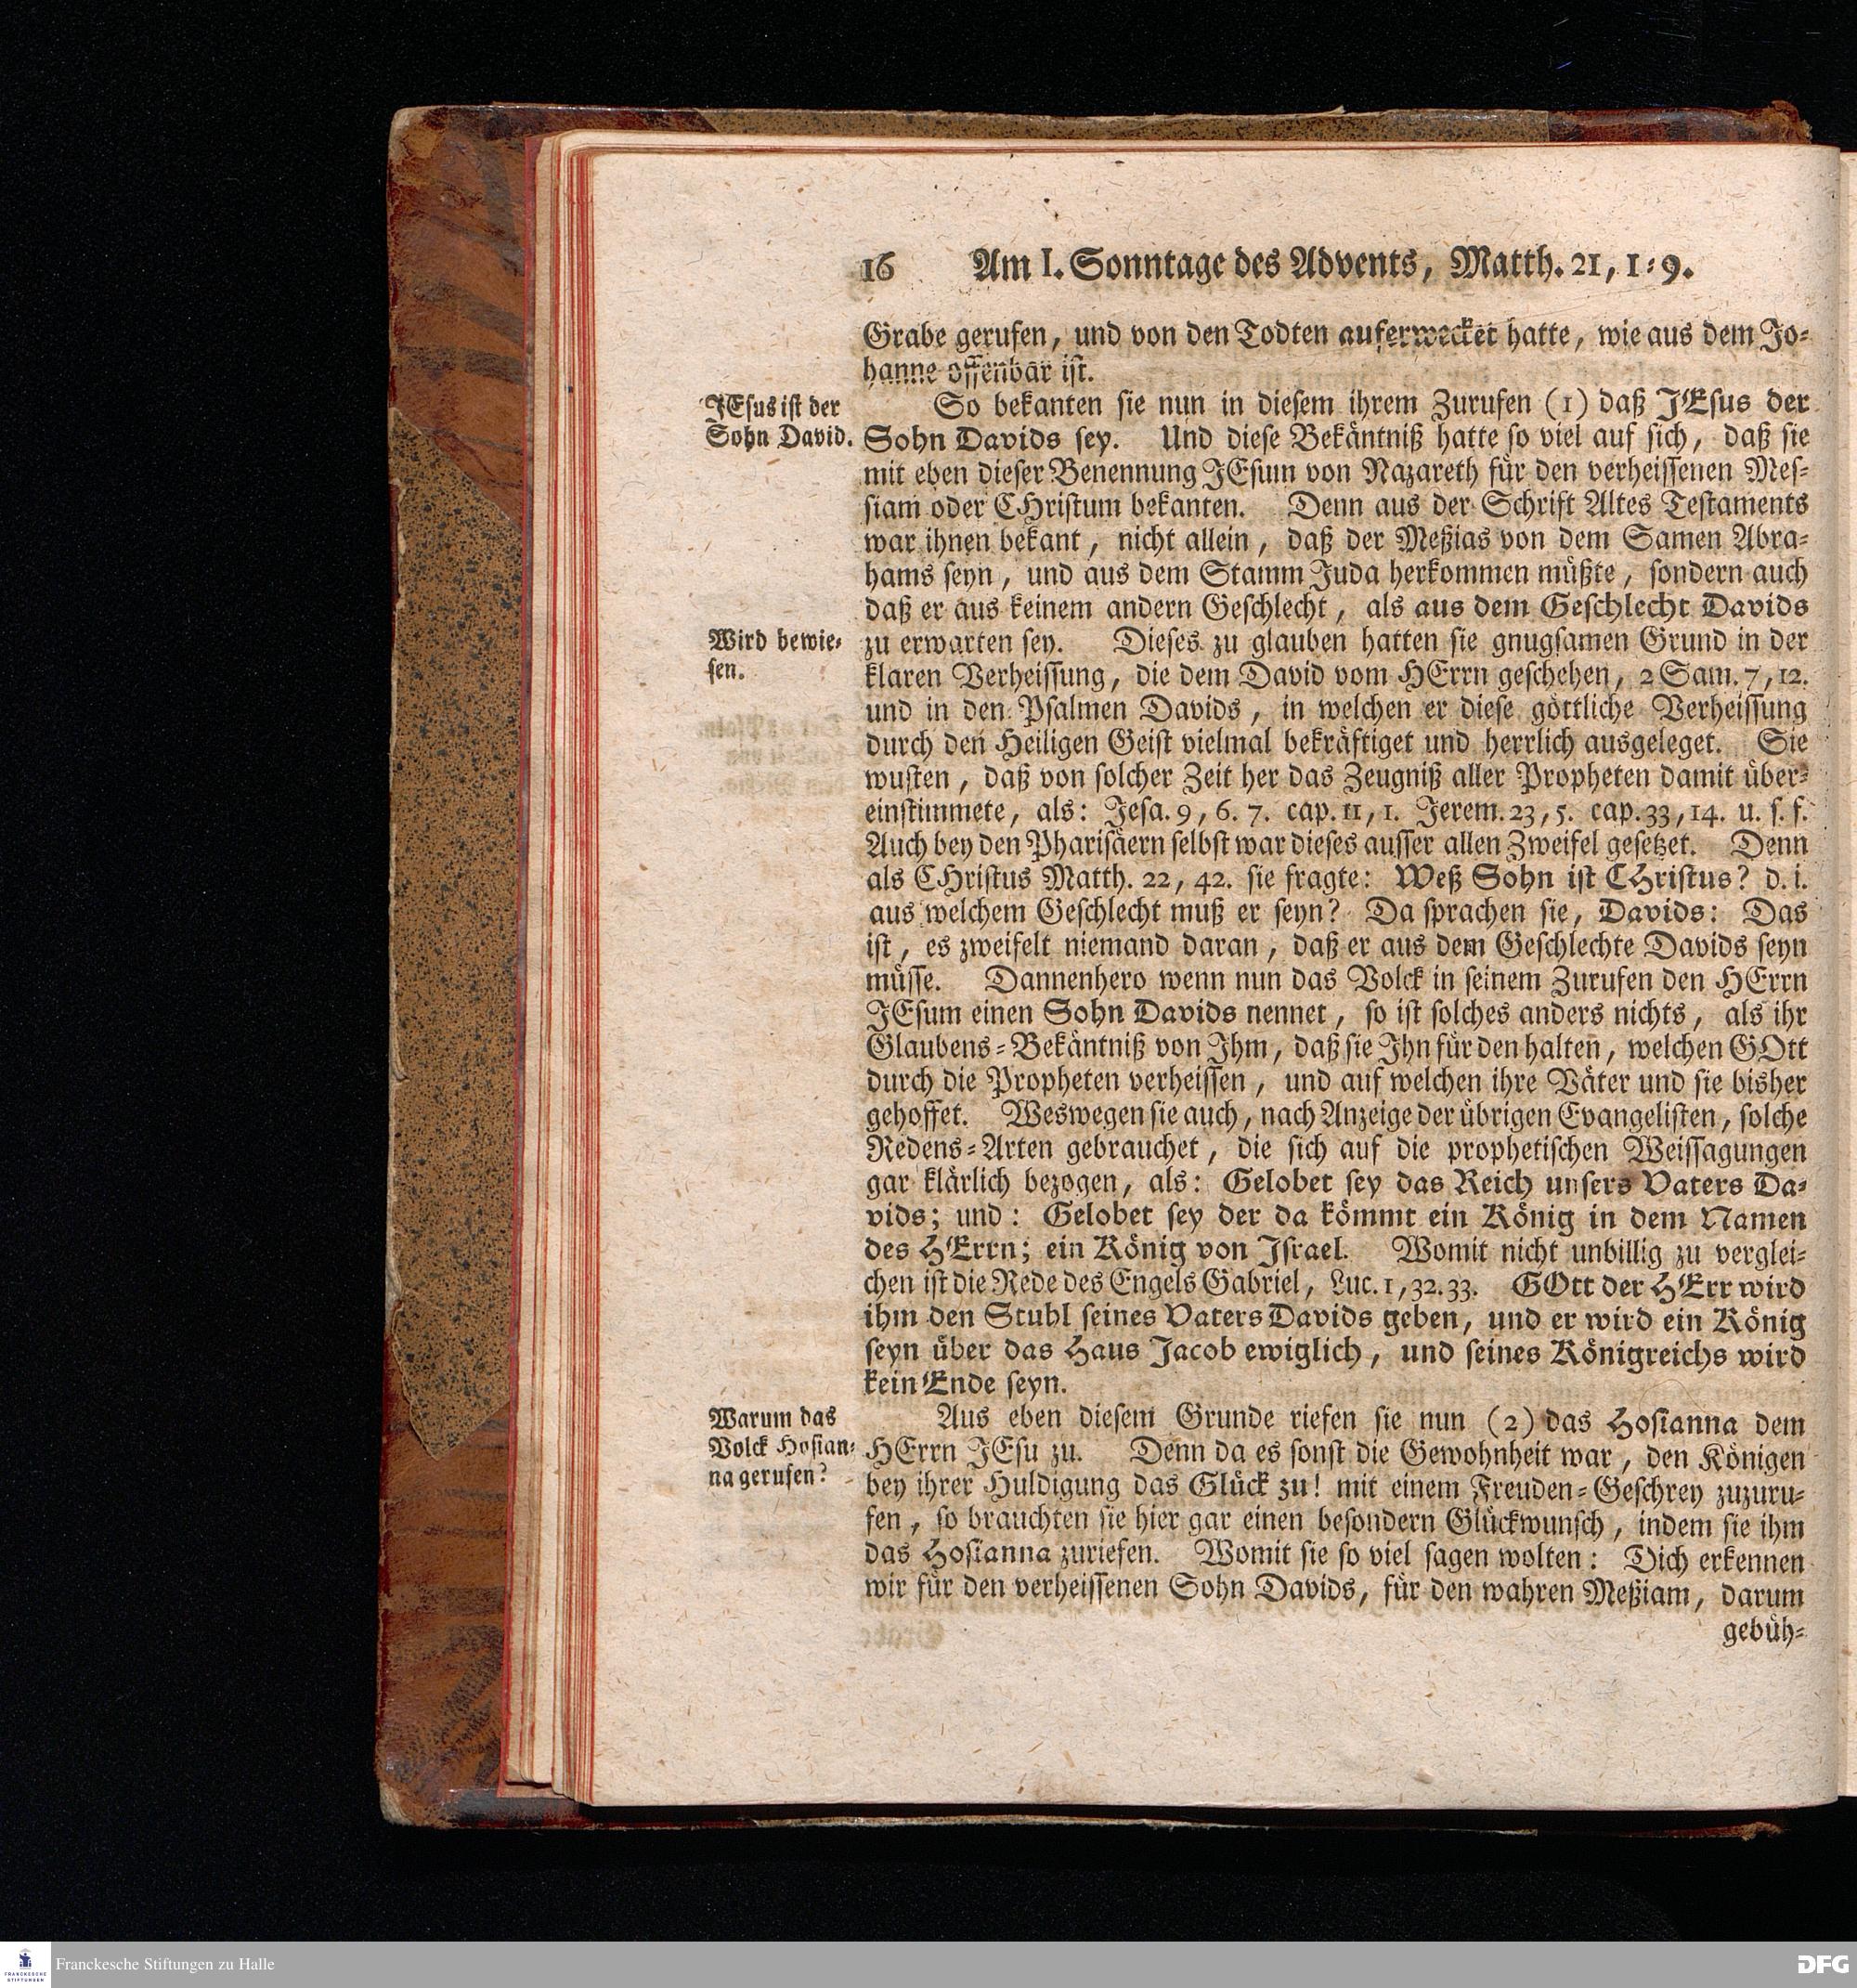 16 Am I. Sonntage des Advents, Matth. 21, 1=9.
Grabe gerufen, und von den Todten auferwecket hatte, wie aus dem Jo=
hanne offenbar ist.
JEsus ist der
Sohn David.
So bekanten sie nun in diesem ihrem Zurufen (1) daß JEsus der
Sohn Davids sey. Und diese Bekäntniß hatte so viel auf sich, daß sie
mit eben dieser Benennung JEsum von Nazareth für den verheissenen Mes=
siam oder CHristum bekanten. Denn aus der Schrift Altes Testaments
war ihnen bekant, nicht allein, daß der Meßias von dem Samen Abra=
hams seyn, und aus dem Stamm Juda herkommen müßte, sondern auch
daß er aus keinem andern Geschlecht, als aus dem Geschlecht Davids
Wird bewie=
sen.
zu erwarten sey. Dieses zu glauben hatten sie gnugsamen Grund in der
klaren Verheissung, die dem David vom HErrn geschehen, 2 Sam. 7, 12.
und in den Psalmen Davids, in welchen er diese göttliche Verheissung
durch den Heiligen Geist vielmal bekräftiget und herrlich ausgeleget. Sie
wusten, daß von solcher Zeit her das Zeugniß aller Propheten damit über=
einstimmete, als: Jesa. 9, 6. 7. cap. 11, 1. Jerem. 23, 5. cap. 33, 14. u. s. f.
Auch bey den Pharisäern selbst war dieses ausser allen Zweifel gesetzet. Denn
als CHristus Matth. 22, 42. sie fragte: Weß Sohn ist CHristus? d. i.
aus welchem Geschlecht muß er seyn? Da sprachen sie, Davids: Das
ist, es zweifelt niemand daran, daß er aus dem Geschlechte Davids seyn
müsse. Dannenhero wenn nun das Volck in seinem Zurufen den HErrn
JEsum einen Sohn Davids nennet, so ist solches anders nichts, als ihr
Glaubens=Bekäntniß von Ihm, daß sie Ihn für den halten, welchen GOtt
durch die Propheten verheissen, und auf welchen ihre Väter und sie bisher
gehoffet. Weswegen sie auch, nach Anzeige der übrigen Evangelisten, solche
Redens=Arten gebrauchet, die sich auf die prophetischen Weissagungen
gar klärlich bezogen, als: Gelobet sey das Reich unsers Vaters Da=
vids; und: Gelobet sey der da kömmt ein König in dem Namen
des HErrn; ein König von Israel. Womit nicht unbillig zu verglei=
chen ist die Rede des Engels Gabriel, Luc. 1, 32. 33. GOtt der HErr wird
ihm den Stuhl seines Vaters Davids geben, und er wird ein König
seyn über das Haus Jacob ewiglich, und seines Königreichs wird
kein Ende seyn.
Warum das
Volck Hosian=
na gerufen?
Aus eben diesem Grunde riefen sie nun (2) das Hosianna dem
HErrn JEsu zu. Denn da es sonst die Gewohnheit war, den Königen
bey ihrer Huldigung das Glück zu! mit einem Freuden=Geschrey zuzuru=
fen, so brauchten sie hier gar einen besondern Glückwunsch, indem sie ihm
das Hosianna zuriefen. Womit sie so viel sagen wolten: Dich erkennen
wir für den verheissenen Sohn Davids, für den wahren Meßiam, darum
gebüh=
FRANCKESCHE
STIFTUNGEN
Franckesche Stiftungen zu Halle
DFG